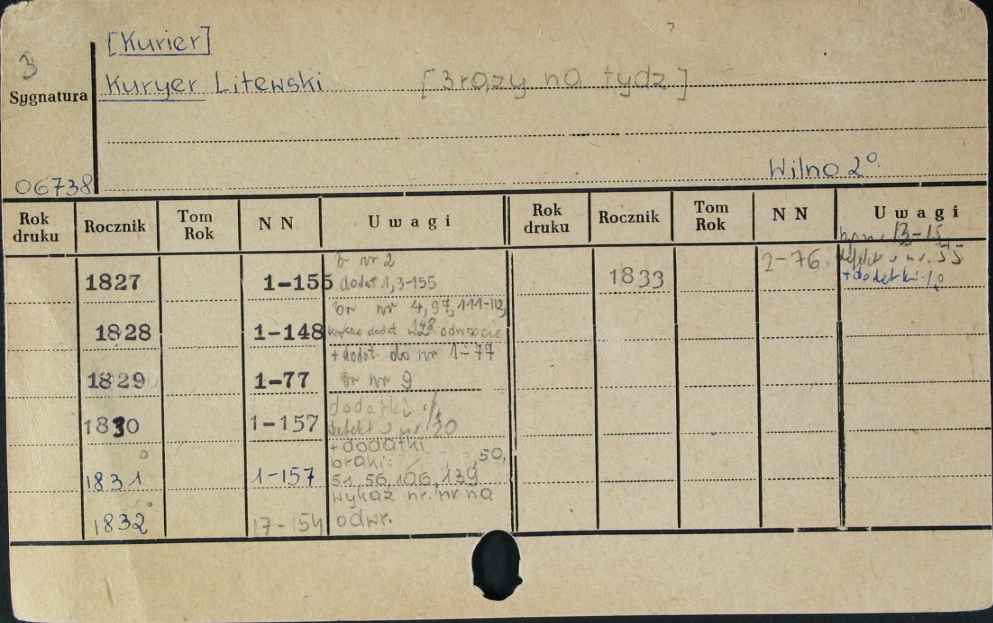 [Kurier]
3
Kuryer Litewski [3 razy na tydz]
Sygnatura
Wilno 2°
06738
Rok druku Rocznik Tom Rok NN Uwagi Rok druku Rocznik Tom Rok NN Uwagi
br nr 2
1827 1-155 dodat 1,3-155
1833 2-76 defekt w nr. 55
+dodatki
br nr 4, 97, 111-112
1828 1-148 dodat 148 odwrocie
+dodat do nr 1-77
1829 1-77 br nr 9
dodatki
1830 1-157 defekt w nr 30
+dodatki
braki: 50,
1831 1-157 51, 56, 106, 139
wykaz nr. nr na
1832 17-154 odwr.